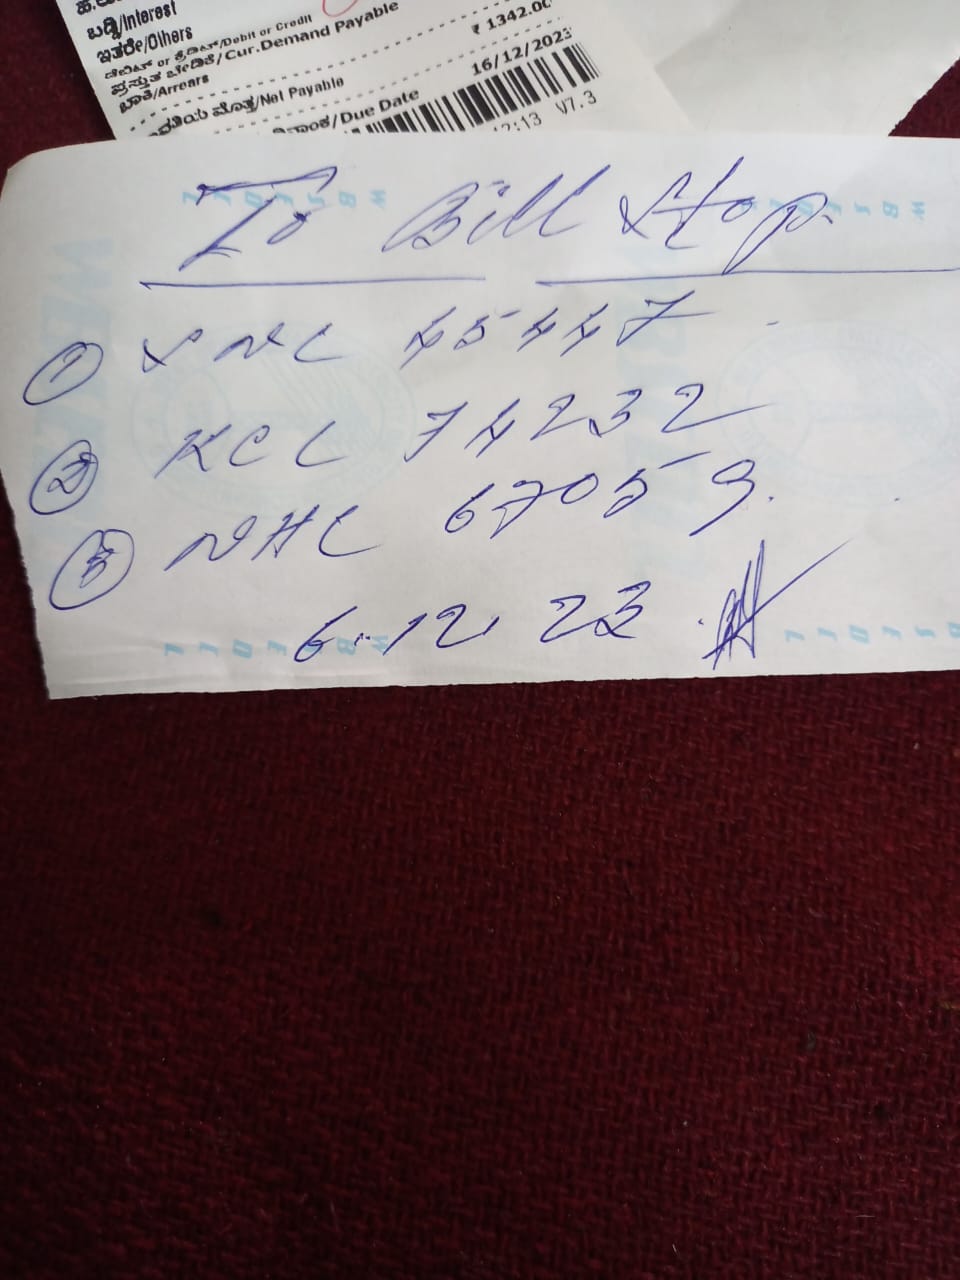 ಬಡ್ಡಿ/Interest
ಇತರೇ/Others
ಡೆಬಿಟ್ or ಕ್ರೆಡಿಟ್/Debit or Credit
ಪ್ರಸ್ತುತ ಬೇಡಿಕೆ/Cur.Demand Payable ₹ 1342.00
ಬಾಕಿ/Arrears
ಮೊತ್ತ/Net Payable
/Due Date 16/12/2023
2:13 V7.3
To Bill Stop.
1 SNL 45447
2 KCL 74232
3 NHL 67059.
6.12.23